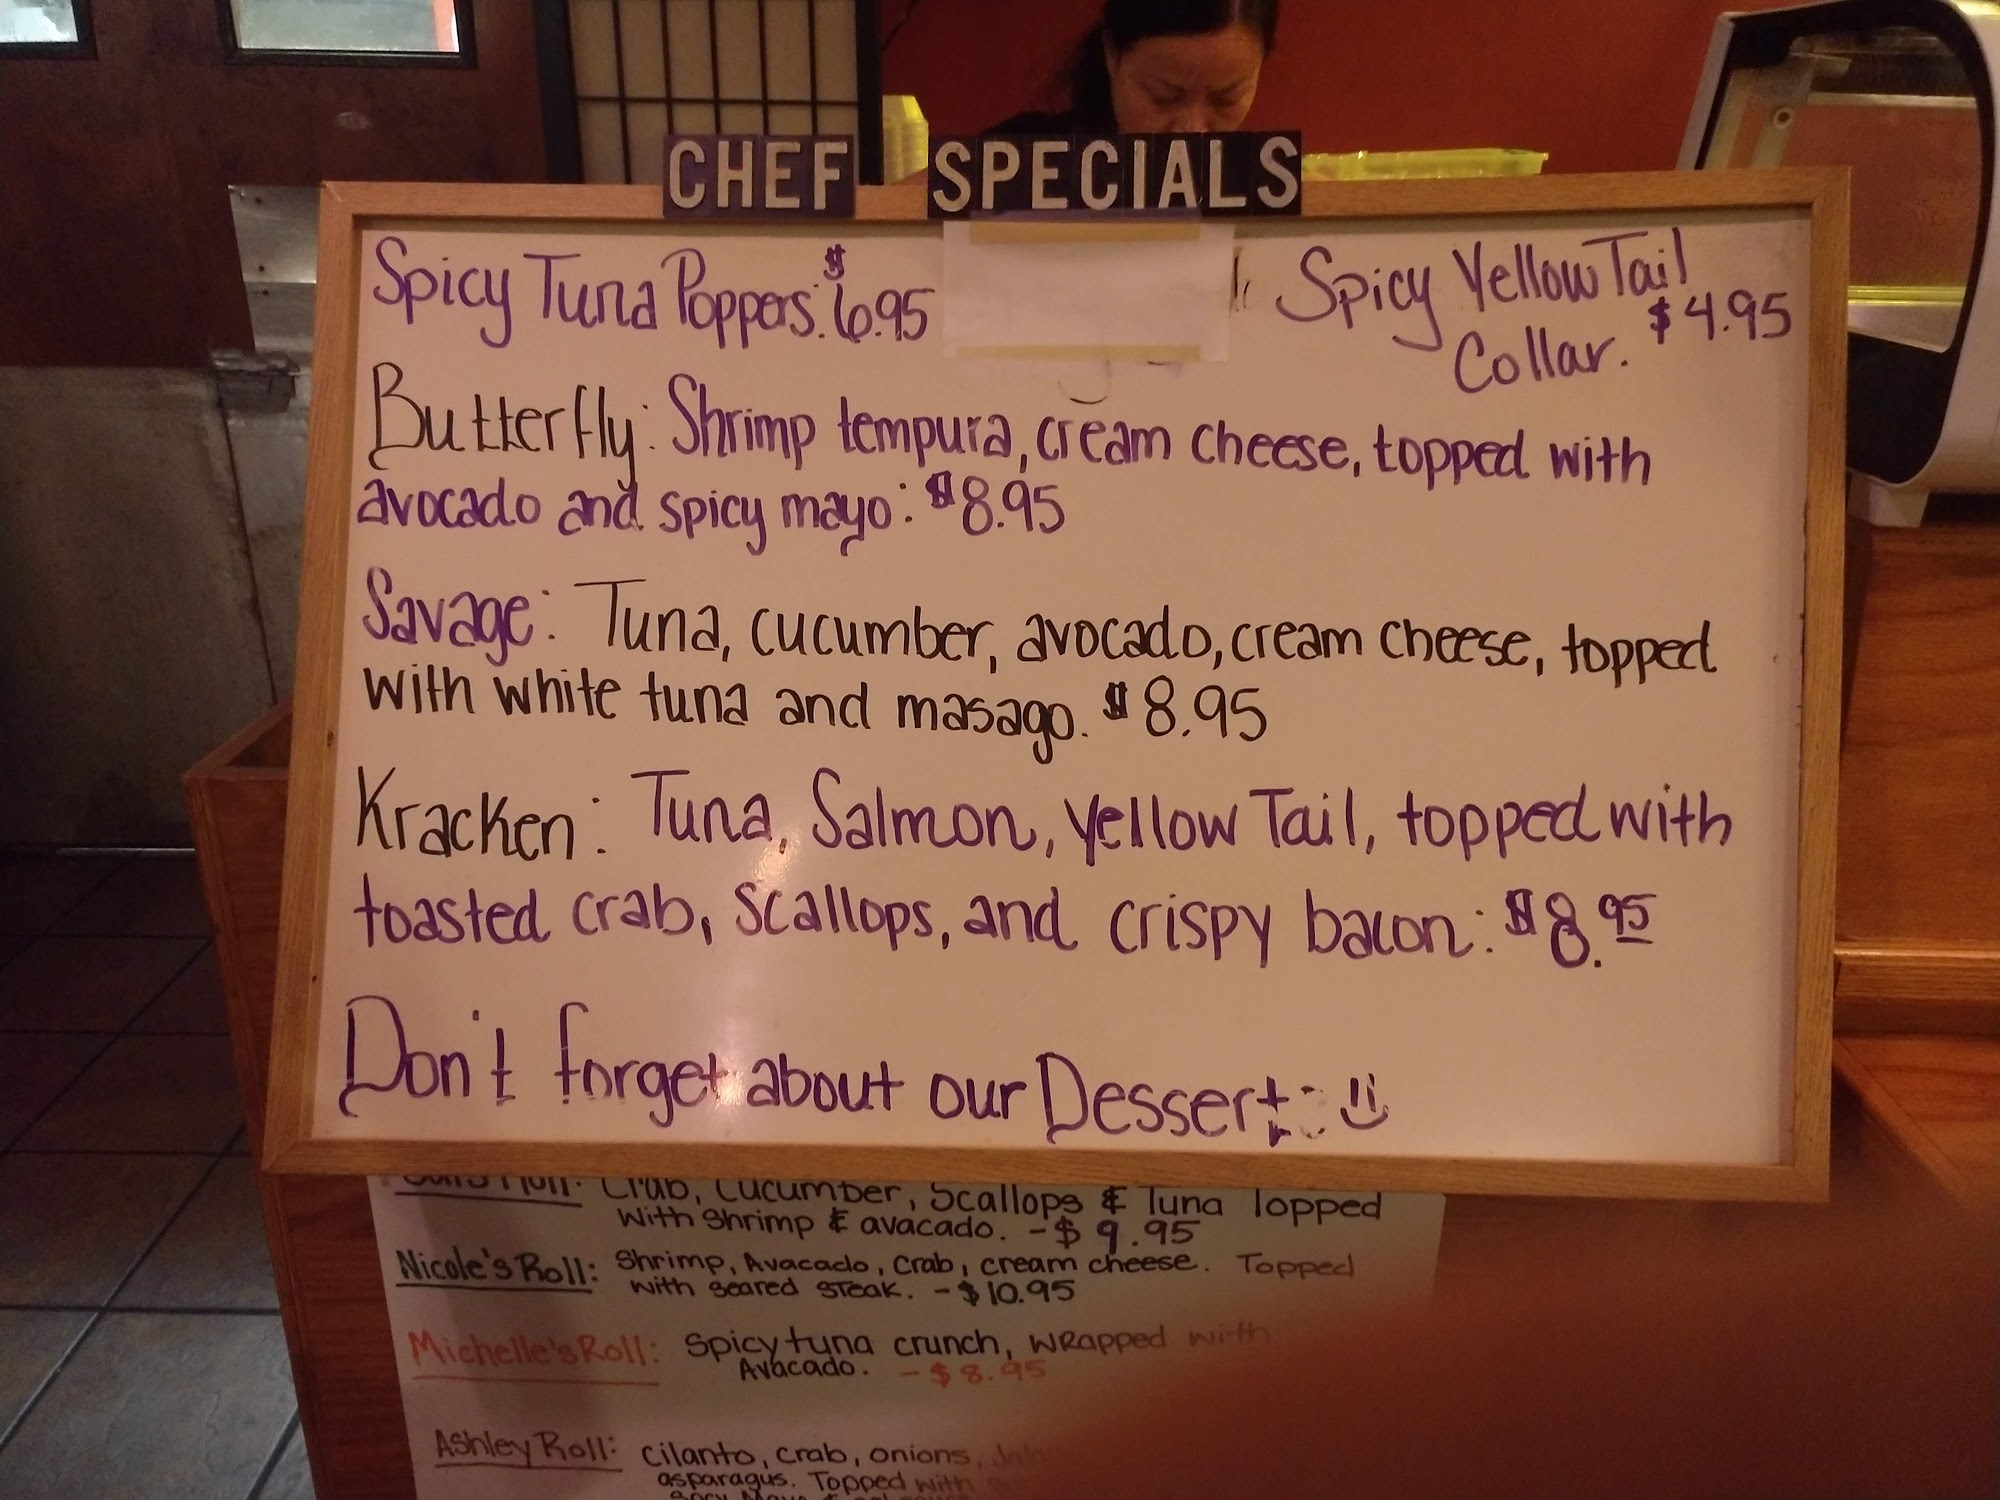 CHEF SPECIALS
Spicy Tuna Poppers: $6.95
Spicy Yellow Tail
Collar. $4.95
Butterfly: Shrimp tempura, cream cheese, topped with
avocado and spicy mayo: $8.95
Savage: Tuna, cucumber, avocado, cream cheese, topped
with white tuna and masago. $8.95
Kracken: Tuna, Salmon, Yellow Tail, topped with
toasted crab, scallops, and crispy bacon: $8.95
Don't forget about our Dessert
Roll: Crab, Cucumber, Scallops & Tuna Topped
With Shrimp & avacado. - $9.95
Nicole's Roll: Shrimp, Avacado, Crab, cream cheese. Topped
with seared steak. - $10.95
Michelle's Roll: Spicy tuna crunch, wrapped with
Avacado. - $8.95
Ashley Roll: cilanto, crab, onions,
asparagus. Topped with